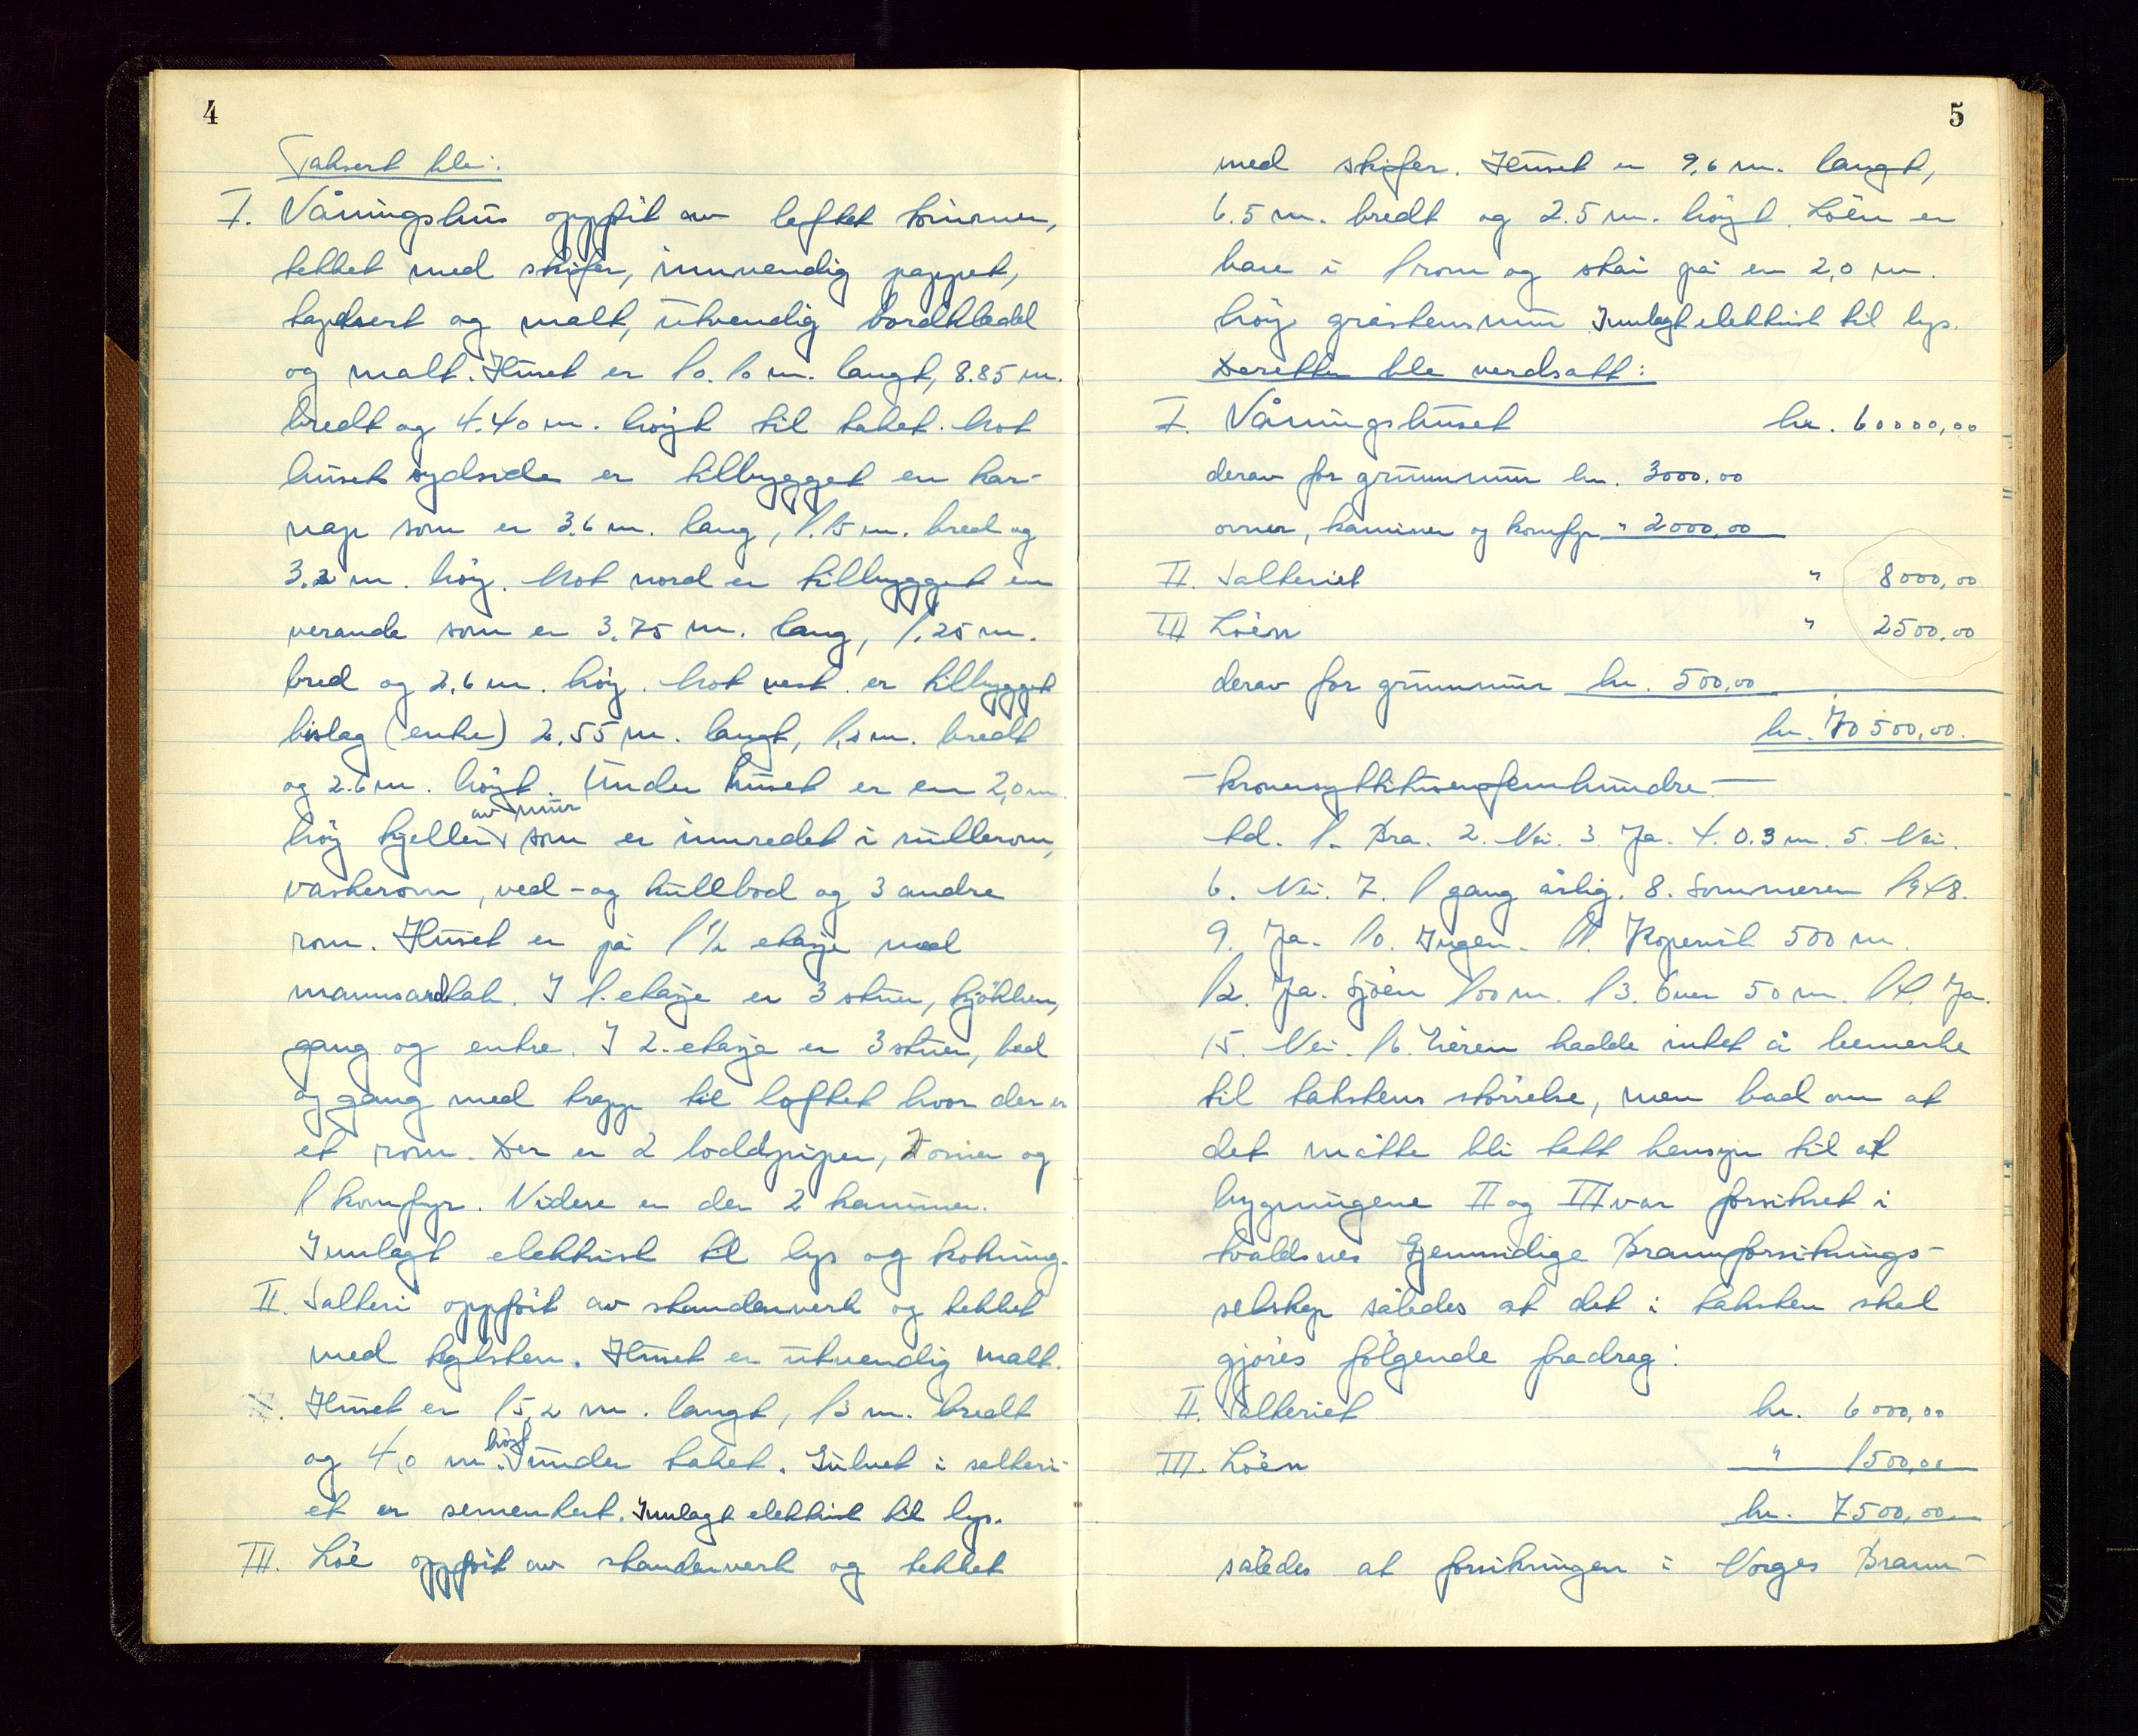 4
Taksert ble:
I. Våningshus oppført av laftet tømmer,
tekket med skifer, innvendig pappet,
tapetsert og malt, utvendig bordkledd
og malt. Huset er 10.10 m. langt, 8.85 m.
bredt og 4.40 m. høyt til taket. Mot
huset sydside er tilbygget en kar-
nap som er 3.6 m. lang, 1.15 m. bred og
3.2 m. høy. Mot nord er tilbygget en
verande som er 3.75 m. lang, 1.25 m.
bred og 2.6 m. høy. Mot vest er tilbygget
bislag (entre) 2.55 m. langt, 1.2 m. bredt
og 2.6 m. høyt. Under huset er en 2,0 m
høy kjeller av mur som er innredet i rullerom,
vaskerom, ved- og kullbod og 3 andre
rom. Huset er på 1 1/2 etasje med
mannsardtak. I 1. etasje er 3 stuer, kjøkken,
gang og entre. I 2. etasje er 3 stuer, bad
og gang med trapp til loftet hvor der er
et rom. Der er 2 loddpiper, 2 ovner og
1 komfyr. Videre er der 2 kaminer.
Innlagt elektrisk til lys og kokning.
II. Salteri oppført av standerverk og tekket
med teglsten. Huset er utvendig malt.
Huset er 15,2 m. langt, 13 m. bredt
og 4,0 m. høyt under taket. Gulvet i salteri-
et er sementert. Innlagt elektrisk til lys.
III. Løe oppført av standerverk og tekket
5
med skifer. Huset er 9,6 m. langt,
6.5 m. bredt og 2.5 m. høyt. Løen er
bare i 1 rom og står på en 2,0 m.
høy gråstensmur Innlagt elektrisk til lys.
Deretter ble verdsatt:
I. Våningshuset kr. 60000,00
derav for grunnmur kr. 3000.00
ovner, kaminer og komfyr " 2000,00
II. Salteriet " 8000,00
III Løen " 2500,00
derav for grunnmur kr. 500,00
kr. 70500,00.
- kronersyttitusenfemhundre -
td. 1. Bra. 2. Nei. 3. Ja. 4. 0.3 m. 5. Nei.
6. Nei. 7. 1 gang årlig. 8. Sommeren 1948.
9. Ja. 10. Ingen. 11. Kopervik 500 m.
12. Ja. Sjøen 100 m. 13. Over 50 m. 14. Ja.
15. Nei. 16. Eieren hadde intet å bemerke
til takstens størrelse, men bad om at
det måtte bli tatt hensyn til at
bygningene II og III var forsikret i
Avaldsnes Gjennsidige Brannforsiknings-
selskap således at det i taksten skal
gjøres følgende fradrag:
II. Salteriet kr. 6000,00
III. Løen " 1500,00
kr. 7500,00
således at forsikringen i Norges Brann-